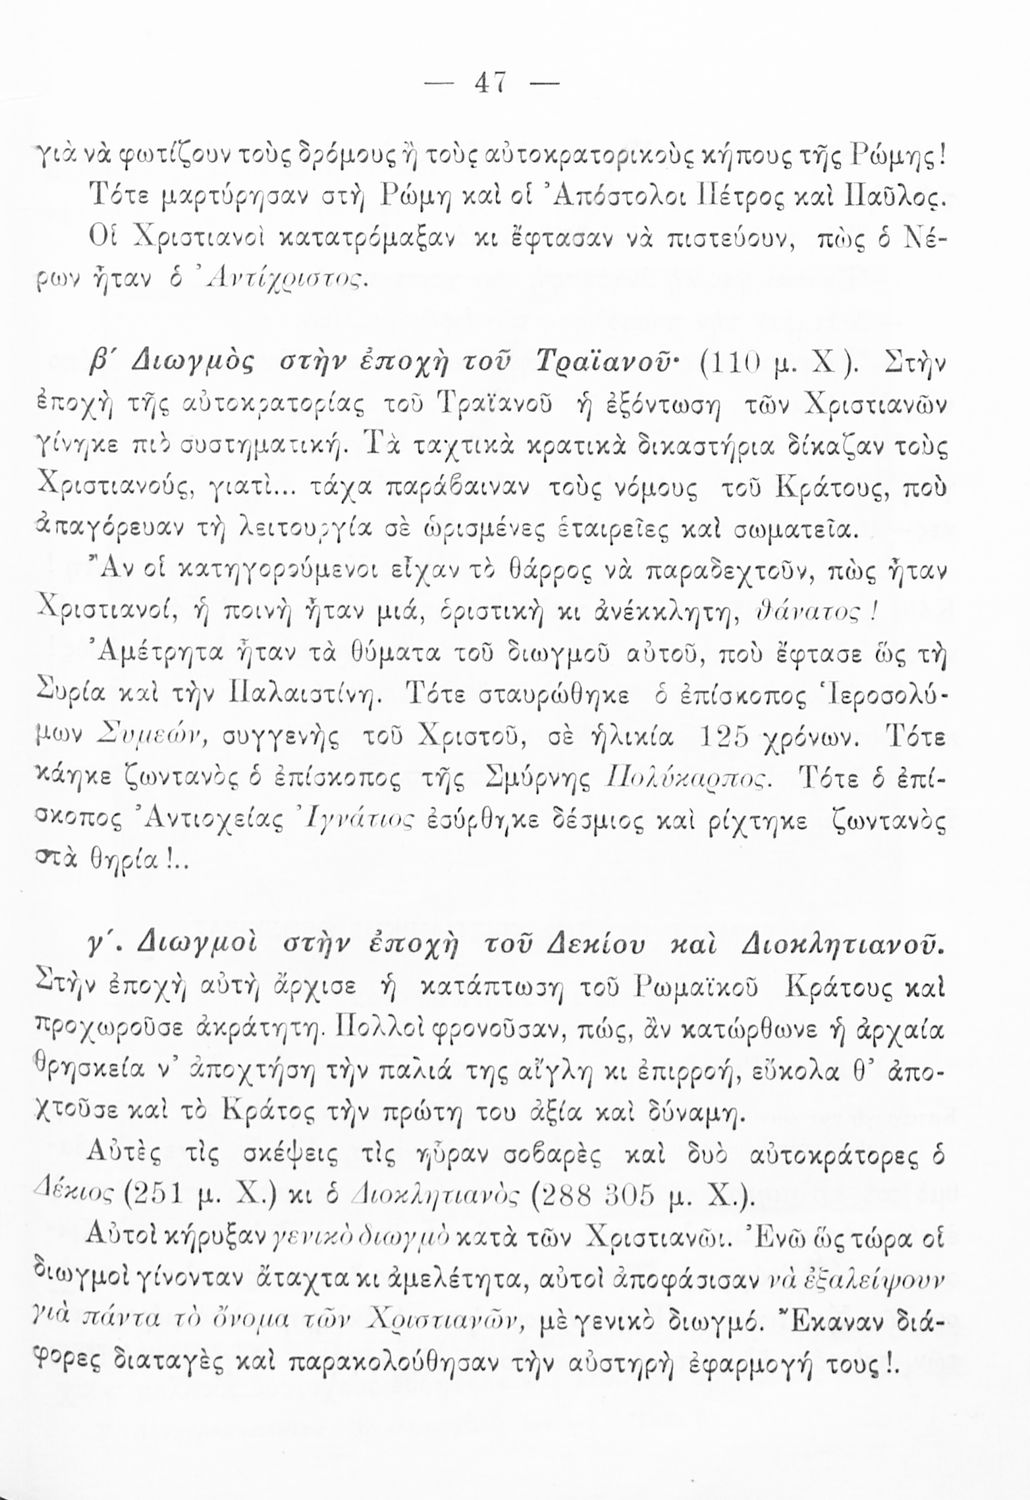 — 47 —
γιὰ νὰ φωτίζουν τοὺς δρόμους ἢ τοὺς αὐτοκρατορικοὺς κήπους τῆς Ρώμης!
Τότε μαρτύρησαν στὴ Ρώμη καὶ οἱ Ἀπόστολοι Πέτρος καὶ Παῦλος.
Οἱ Χριστιανοὶ κατατρόμαξαν κι ἔφτασαν νὰ πιστεύουν, πὼς ὁ Νέ-
ρων ἦταν ὁ Ἀντίχριστος.
β΄ Διωγμὸς στὴν ἐποχὴ τοῦ Τραϊανοῦ· (110 μ. Χ ). Στὴν
ἐποχὴ τῆς αὐτοκρατορίας τοῦ Τραϊανοῦ ἡ ἐξόντωση τῶν Χριστιανῶν
γίνηκε πιὸ συστηματική. Τὰ ταχτικὰ κρατικὰ δικαστήρια δίκαζαν τοὺς
Χριστιανούς, γιατὶ... τάχα παράβαιναν τοὺς νόμους τοῦ Κράτους, ποὺ
ἀπαγόρευαν τὴ λειτουργία σὲ ὡρισμένες ἑταιρεῖες καὶ σωματεῖα.
Ἂν οἱ κατηγορούμενοι εἶχαν τὸ θάρρος νὰ παραδεχτοῦν, πὼς ἦταν
Χριστιανοί, ἡ ποινὴ ἦταν μιά, ὁριστικὴ κι ἀνέκκλητη, θάνατος !
Ἀμέτρητα ἦταν τὰ θύματα τοῦ διωγμοῦ αὐτοῦ, ποὺ ἔφτασε ὥς τὴ
Συρία καὶ τὴν Παλαιστίνη. Τότε σταυρώθηκε ὁ ἐπίσκοπος Ἱεροσολύ-
μων Συμεών, συγγενὴς τοῦ Χριστοῦ, σὲ ἡλικία 125 χρόνων. Τότε
κάηκε ζωντανὸς ὁ ἐπίσκοπος τῆς Σμύρνης Πολύκαρπος. Τότε ὁ ἐπί-
σκοπος Ἀντιοχείας Ἰγνάτιος ἐσύρθηκε δέσμιος καὶ ρίχτηκε ζωντανὸς
στὰ θηρία !..
γ΄. Διωγμοὶ στὴν ἐποχὴ τοῦ Δεκίου καὶ Διοκλητιανοῦ.
Στὴν ἐποχὴ αὐτὴ ἄρχισε ἡ κατάπτωση τοῦ Ρωμαϊκοῦ Κράτους καὶ
προχωροῦσε ἀκράτητη. Πολλοὶ φρονοῦσαν, πώς, ἂν κατώρθωνε ἡ ἀρχαία
θρησκεία ν’ ἀποχτήση τὴν παλιά της αἴγλη κι ἐπιρροή, εὔκολα θ’ ἀπο-
χτοῦσε καὶ τὸ Κράτος τὴν πρώτη του ἀξία καὶ δύναμη.
Αὐτὲς τὶς σκέψεις τὶς ηὗραν σοβαρὲς καὶ δυὸ αὐτοκράτορες ὁ
Δέκιος (251 μ. Χ.) κι ὁ Διοκλητιανὸς (288 305 μ. Χ.).
Αὐτοὶ κήρυξαν γενικὸ διωγμὸ κατὰ τῶν Χριστιανῶν. Ἐνῶ ὥς τώρα οἱ
διωγμοὶ γίνονταν ἄταχτα κι ἀμελέτητα, αὐτοὶ ἀποφάσισαν νὰ ἐξαλείψουν
γιὰ πάντα τὸ ὄνομα τῶν Χριστιανῶν, μὲ γενικὸ διωγμό. Ἔκαναν διά-
φορες διαταγὲς καὶ παρακολούθησαν τὴν αὐστηρὴ ἐφαρμογή τους !.